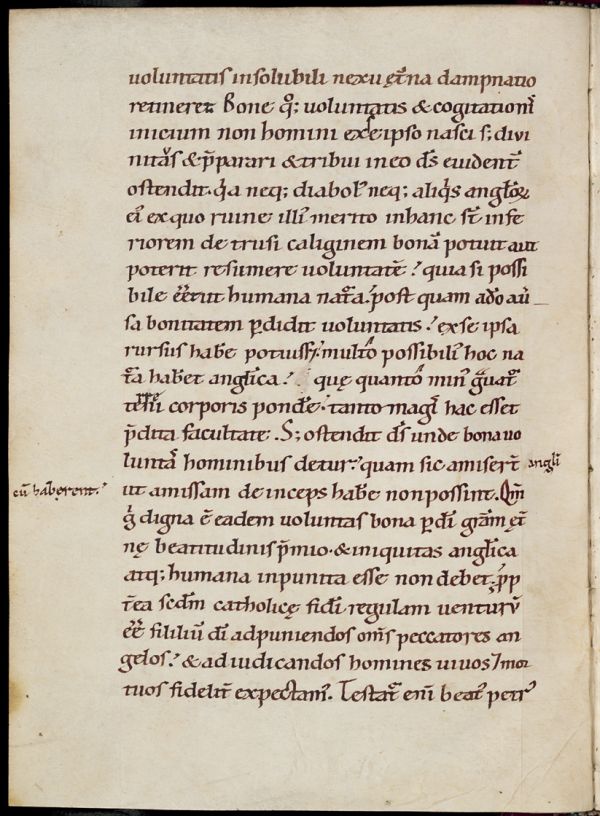 voluntatis insolubili nexu et̄na dampnatio
retineret Bone q̊; voluntatis & cogitationis̄
inicium non homini ex se ipso nasci s; divi
nit᷒s & p̄parari & tribui in eo dš evident̄
ostendit. q̓a neq; diabol᷒ neq; aliq̓s angłoꝝ
ex quo ruine illi᷒ merito in hanc st̄ infe
riorem de trusi caliginem bonā potuit aut
poterit resumere voluntatē. quia si possi
bile eēt ut humana nat̄a. post quam a do au᷒
sa bonitatem ꝑdidit voluntatis. ex se ipsa
rursus habe potuiss;. multo possibili᷒ hoc na
t̄a haberet angłica. quę quanto min᷒ g̓uat᷒
terreni corporis ponde᷒. tanto magi᷒ hac esset
p̄dita facultate. S; ostendit dš unde bona vo
luntas hominibus detur quam sic amisert̄ angłi
cū haberent.
ut amissam deinceps habe non possint. Qm̄
g̊ digna ē eadem voluntas bona ꝑ dī grām et̄
nę beatitudinis p̄mio. & iniquitas angłica
atq; humana inpunita esse non debet. ꝓp
t̄ea scdm̄ catholicę fidī regulam venturū
eē fililiū dī ad puniendos om̄s peccatores an
gelos. & ad iudicandos homines vivos ⁊ mor
tuos fidelit̄ expectam᷒. Testat᷒ enī beat᷒ petr᷒